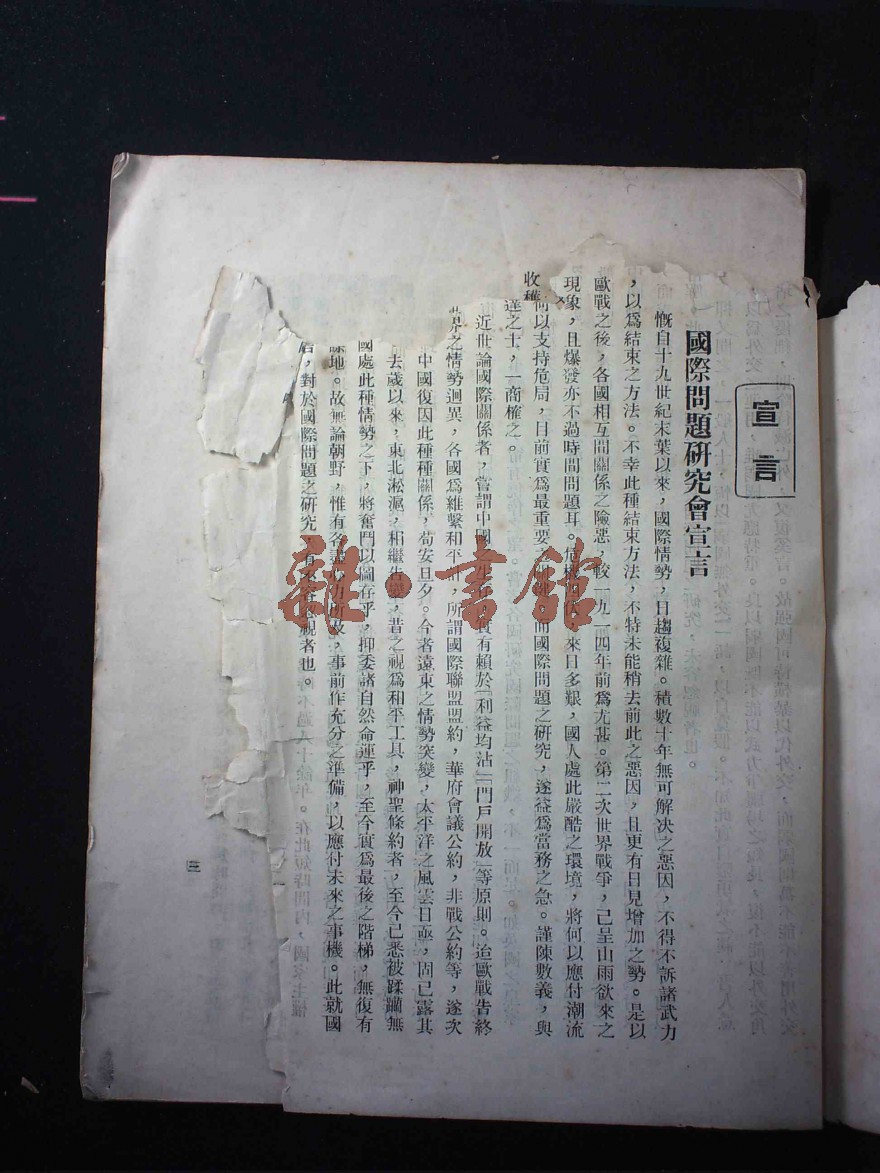 宣言
國際問題研究會宣言
慨自十九世紀末葉以來，國際情勢，日趨複雜。積數十年無可解決之惡因，不得不訴諸武力
，以爲結束之方法。不幸此種結束方法，不特未能稍去前此之惡因，且更有日見增加之勢。是以
歐戰之後，各國相互間關係之險惡，較一九一四年前爲尤甚。第二次世界戰爭，已呈山雨欲來之
現象，且爆發亦不過時間問題耳。危機四伏，來日多艱，國人處此嚴酷之環境，將何以應付潮流
收穫
何以支持危局，目前實爲最重要之問題，而國際問題之研究，遂益爲當務之急。謹陳數義，與
達之士，一商榷之。
近世論國際關係者，嘗謂中國之生存，實有賴於「利益均沾」「門戶開放」等原則。迨歐戰告終
界之情勢迥異，各國爲維繫和平計，所謂國際聯盟盟約，華府會議公約，非戰公約等，遂次
中國復因此種種關係，苟安旦夕。今者遠東之情勢突變，太平洋之風雲日亟，固已露其
去歲以來，東北淞滬，相繼告，昔之視爲和平工具，神聖條約者，至今已悉被蹂躪無
國處此種情勢之下，將奮鬥以圖存乎，抑委諸自然命運乎，至今實爲最後之階梯，無復有
餘地。故無論朝野，惟有各盡力所及，事前作充分之準備，以應付未來之事機。此就國
，對於國際問題之研究，有視者也。
不過八十餘年。在此短時間內，國家主權
三
雜·書館